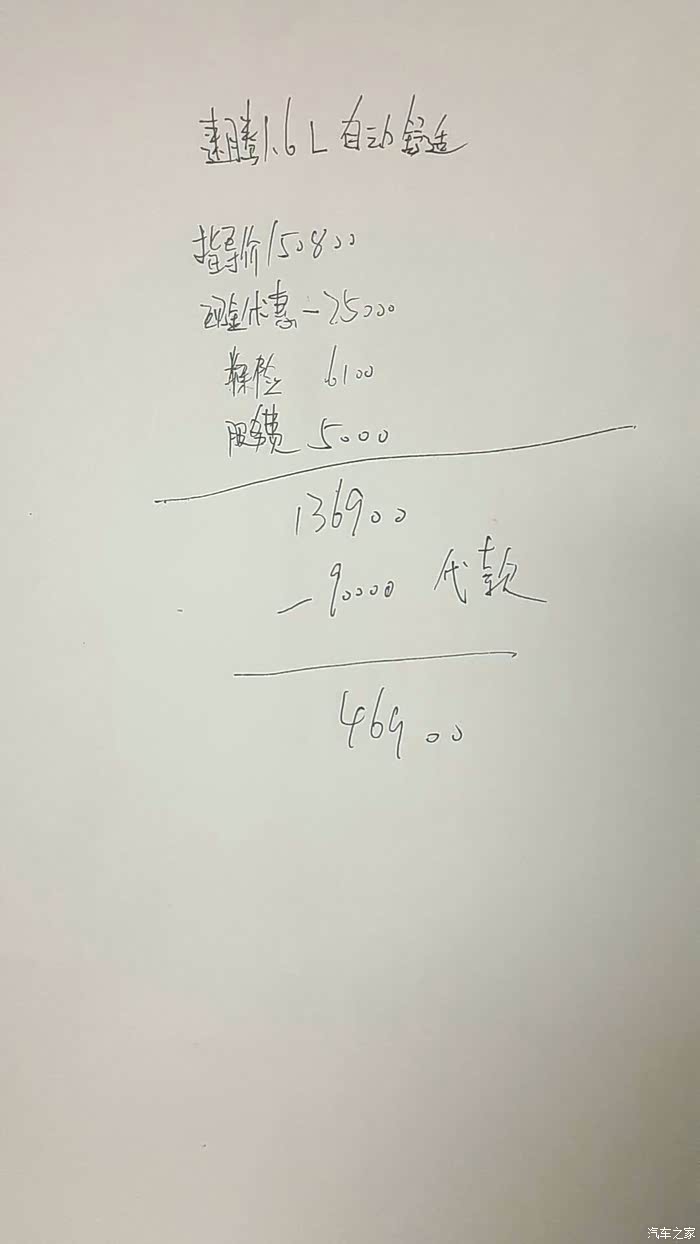 速腾1.6L自动舒适
指导价150800
现金优惠-25000
保险 6100
服务费 5000
136900
-90000 代款
46900
汽车之家